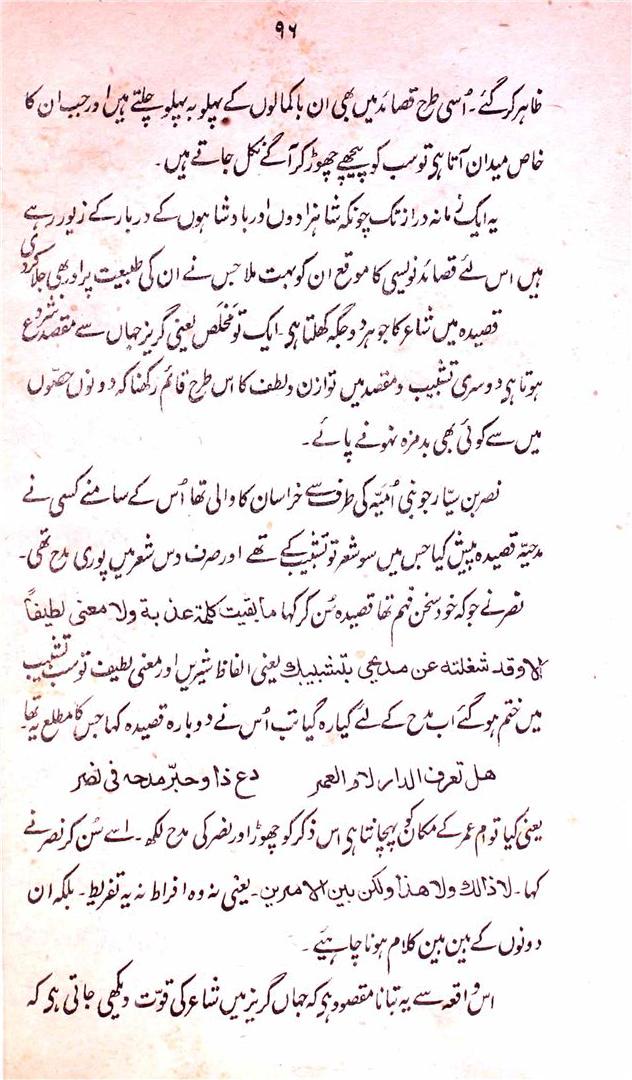 ۹۶
ظاہر کر گئے۔ اُسی طرح قصائد میں بھی ان باکمالوں کے پہلو بہ پہلو چلتے ہیں اور جب ان کا
خاص میدان آتا ہی تو سب کو پیچھے چھوڑ کر آگے نکل جاتے ہیں۔
یہ ایک زمانہ دراز تک چونکہ شاہزادوں اور بادشاہوں کے دربار کے زیور رہے
ہیں اس لئے قصائد نویسی کا موقع ان کو بہت ملا جس نے ان کی طبیعت پر اور بھی جلا کر دی
قصیدہ میں شاعر کا جوہر دو جگہ کھلتا ہی۔ ایک تو مَخلَص یعنی گریز جہاں سے مقصد شروع
ہوتا ہی دوسری تشبیب و مقصد میں توازن و لطف کا اس طرح قائم رکھنا کہ دونوں حصّوں
میں سے کوئی بھی بدمزہ نہونے پائے۔
نصر بن سیّار جو بنی اُمیّہ کی طرف سے خراسان کا والی تھا اُس کے سامنے کسی نے
مدحیّہ قصیدہ پیش کیا جس میں سو شعر تو تشبیب کے تھے اور صرف دس شعر میں پوری مدح تھی۔
نصر نے جو کہ خود سخن فہم تھا قصیدہ سُن کر کہا ما بقیت کلمۃ عذبۃ ولا معنی لطیفاً
الا وقد شغلته عن مدحی بتشبیبک یعنی الفاظ شیریں اور معنی لطیف تو سب تشبیب
میں ختم ہو گئے اب مدح کے لئے کیا رہ گیا تب اُس نے دوبارہ قصیدہ کہا جس کا مطلع یہ تھا۔
هل تعرف الدار لام العمر دع ذا وحبّر مدحه فی نصر
یعنی کیا تو ام عمر کے مکان کو پہچانتا ہی اس ذکر کو چھوڑ اور نصر کی مدح لکھ۔ اسے سُن کر نصر نے
کہا۔ لا ذالک ولا هذا ولکن بین الامرین۔ یعنی نہ وہ افراط نہ یہ تفریط۔ بلکہ ان
دونوں کے بین بین کلام ہونا چاہیئے۔
اس واقعہ سے یہ بتانا مقصود ہی کہ جہاں گریز میں شاعر کی قوّت دیکھی جاتی ہی کہ